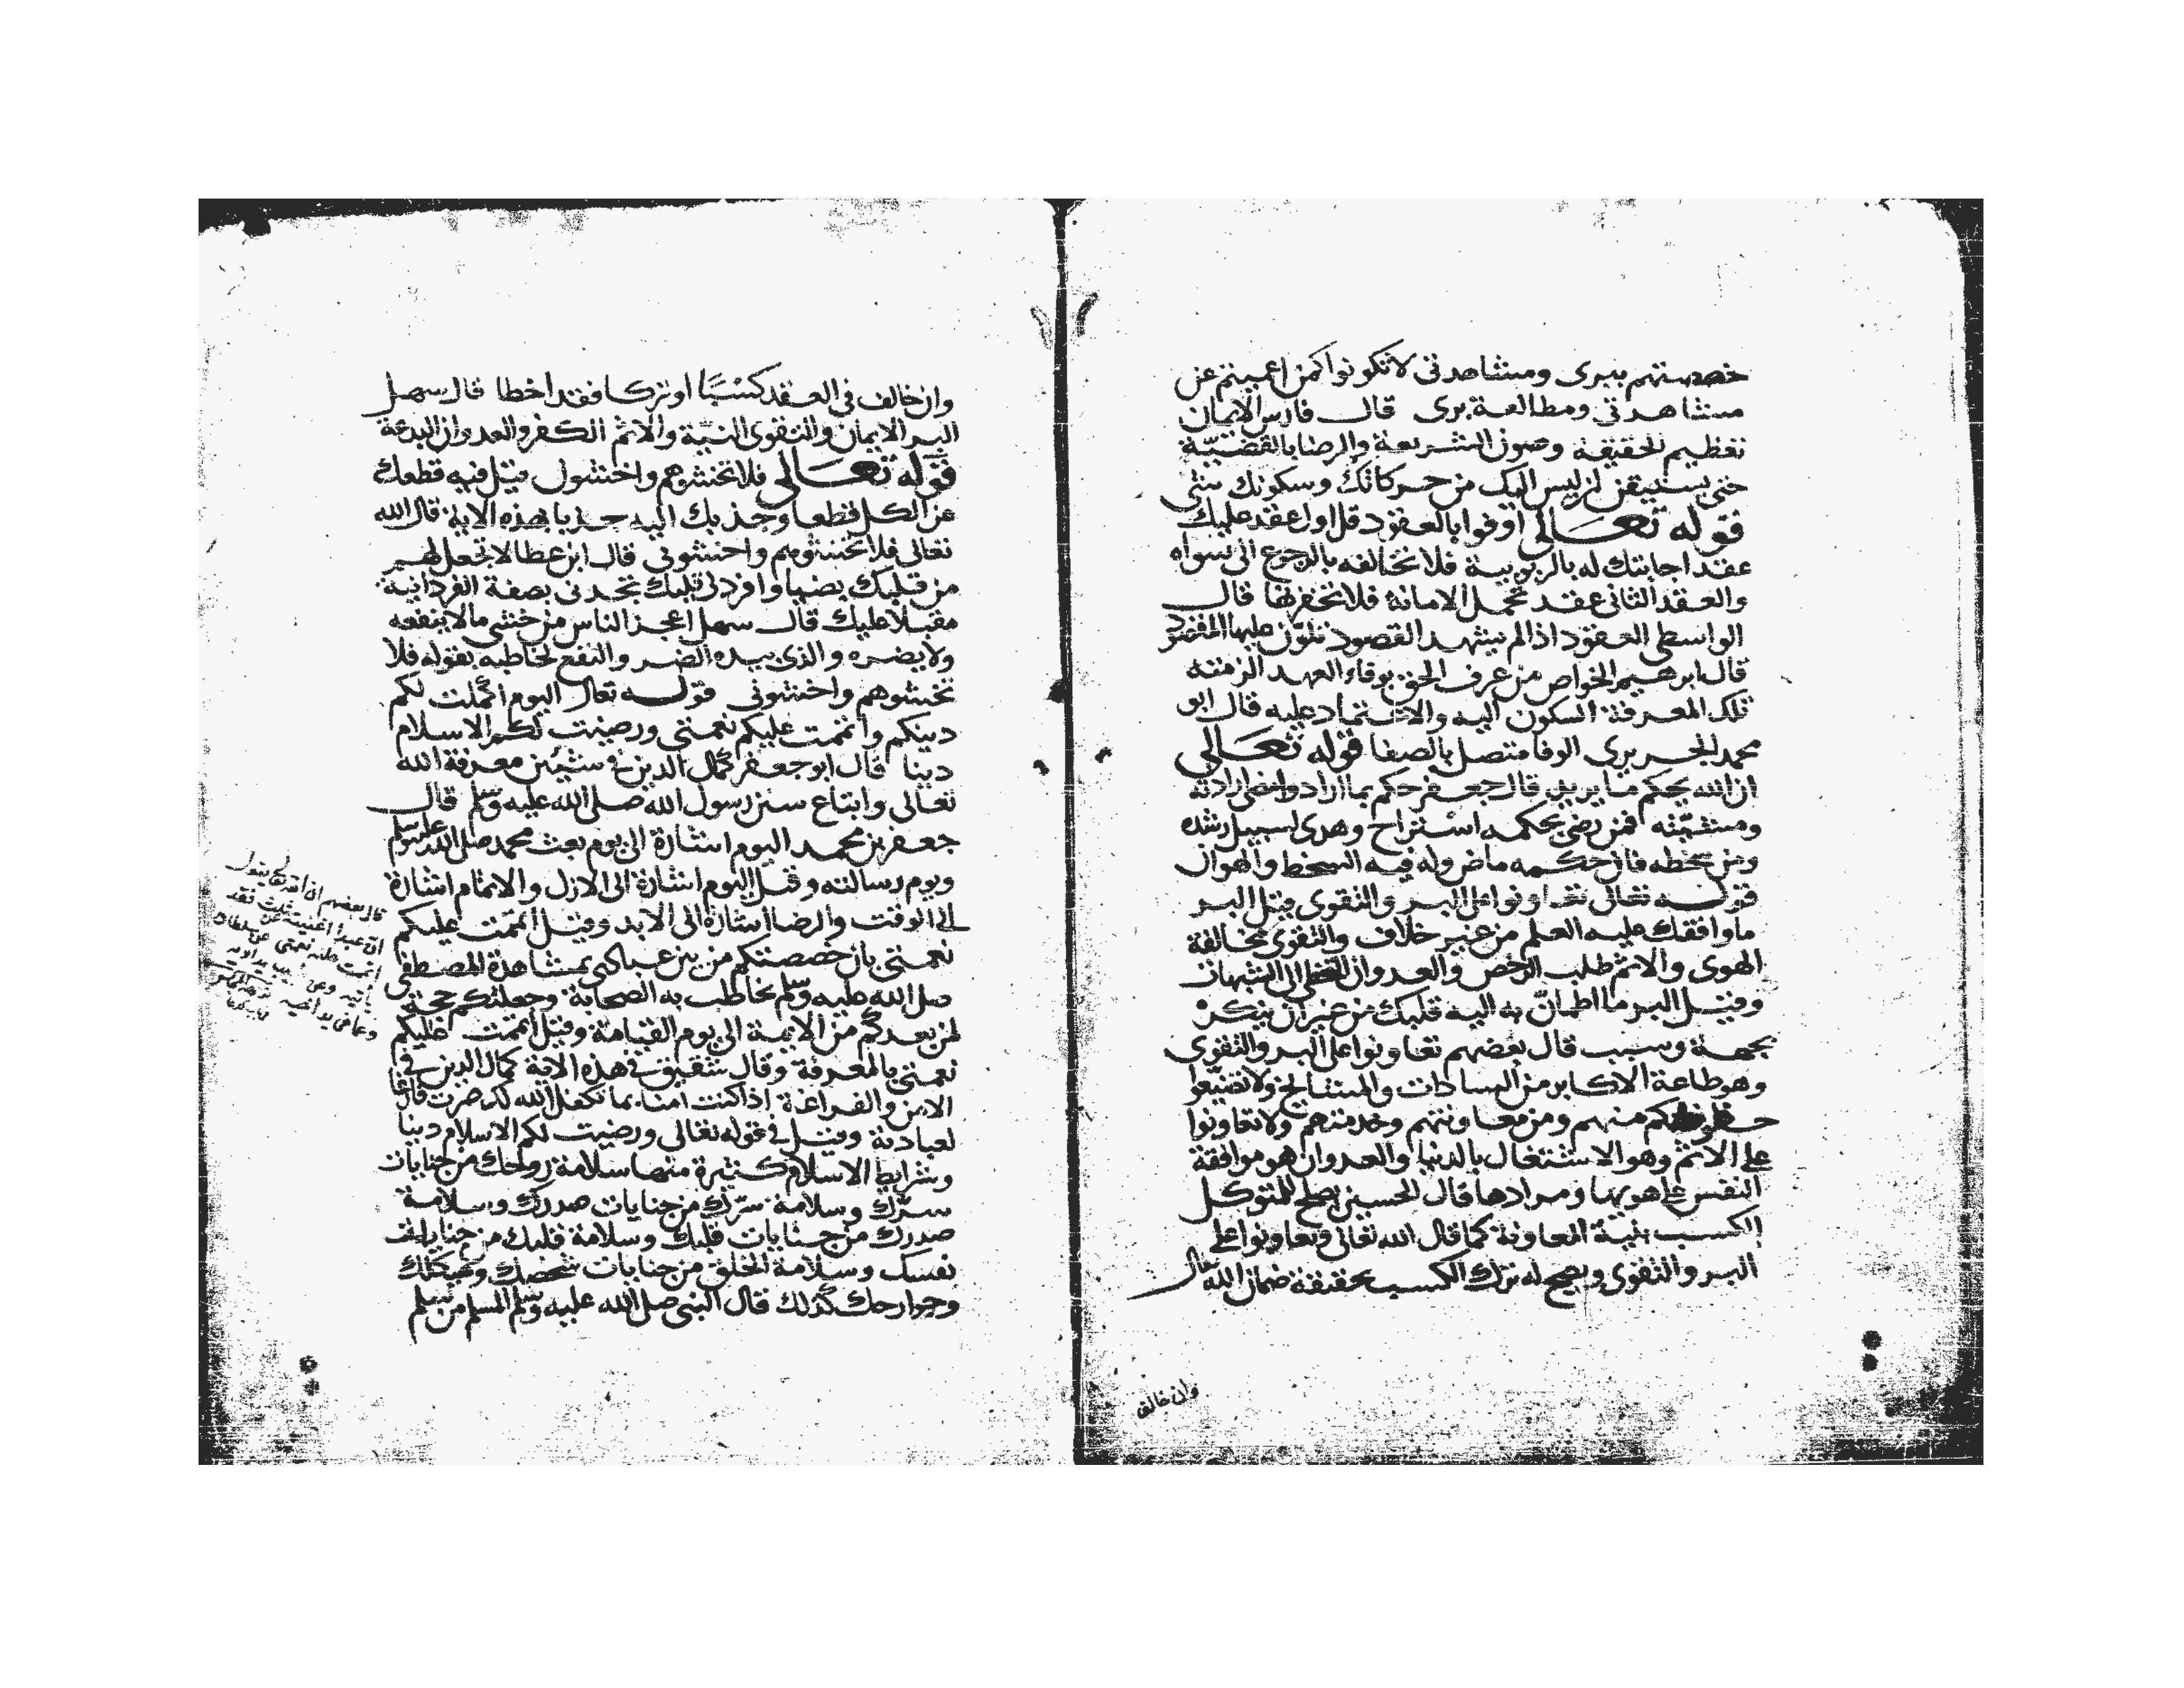 خصصتهم ببرى ومشاهدتى لا تكونوا كمن اعميتم عن
مشاهدتى ومطالعة برى قال فارس الايمان
تعظيم الحقيقة وصون الشريعة والرضا بالقضية
حتى يستيقن ان ليس اليك من حركاتك وسكونك شئ
قوله تعالى اوفوا بالعقود قل اول عقد عليك
عقد اجابتك له بالربوبية فلا تخالفه بالرجوع الى سواه
والعقد الثانى عقد تحمل الامانة فلا تخفرنها قال
الواسطى العقود اذا لم يشهد القصود تلون عليها
قال ابرهيم الخواص من عرف الحق بوفاء العهد الزمته
تلك المعرفة السكون اليه والاعتماد عليه قال ابو
محمد الجريرى الوفا متصل بالصفا قوله تعالى
ان الله يحكم ما يريد قال جعفر حكم بما اراد وامضى ارادته
ومشيته فمن رضى بحكمه استراح وهدى لسبيل رشده
ومن سخطه فان حكمه ماض وله فيه السخط والهوان
قوله تعالى تعاونوا على البر والتقوى قيل البر
ما وافقك عليه العلم من غير خلاف والتقوى مخالفة
الهوى والاثم طلب الرخص والعدوان التخطى الى الشبهات
وقيل البر ما اطمان به اليه قلبك من غير ان ينكره
بجهة وسبب قال بعضهم تعاونوا على البر والتقوى
وهو طاعة الاكابر من السادات والمشايخ ولا تضيعوا
حظوظكم منهم ومن معاونتهم وخدمتهم ولا تعاونوا
على الاثم وهو الاشتغال بالدنيا والعدوان هو موافقة
النفس على هويها ومرادها قال الحسين يصلح للمتوكل
الكسب بنية المعاونة كما قال الله تعالى وتعاونوا على
البر والتقوى ويصح له ترك الكسب بحقيقة ضمان الله تعالى
وان خالف
وان خالف فى العقد كسبا او تركا فقد اخطا قال سهل
البر الايمان والتقوى النية والاثم الكفر والعدوان البدعة
قوله تعالى فلا تخشوهم واخشون قيل فيه قطعك
عن الكل قطعا وجذبك اليه جذبا بهذه الاية قال الله
تعالى فلا تخشوهم واخشونى قال ابن عطا لا تجعل لهم
من قلبك نصيبا وافرد لى قلبك تجدنى بصفة الفردانية
مقبلا عليك قال سهل اعجز الناس من خشى مالا ينفعه
ولا يضره والذى بيده الضر والنفع يخاطبه بقوله فلا
تخشوهم واخشونى قوله تعالى اليوم اكملت لكم
دينكم واتممت عليكم نعمتى ورضيت لكم الاسلام
دينا قال ابو جعفر كمال الدين فى شيئين معرفة الله
تعالى واتباع سنن رسول الله صلى الله عليه وسلم قال
جعفر بن محمد اليوم اشارة الى يوم بعث محمد صلى الله عليه وسلم
ويوم رسالته وقيل اليوم اشارة الى الازل والاتمام اشارة
الى الوقت والرضا اشارة الى الابد وقيل اتممت عليكم
نعمتى بان خصصتكم من بين عبادى بمشاهدة المصطفى
صلى الله عليه وسلم يخاطب به الصحابة وجعلتكم حجة
لمن بعدكم من الايمة الى يوم القيامة وقيل اتممت عليكم
نعمتى بالمعرفة وقال شقيق فى هذه الاية كمال الدين فى
الامن والفراغة اذا كنت امنا بما تكفل الله لك صرت فارغا
لعبادته وقيل فى قوله تعالى ورضيت لكم الاسلام دينا
وشرايط الاسلام كثيرة منها سلامة روحك من جنايات
سرك وسلامة سرك من جنايات صدرك وسلامة
صدرك من جنايات قلبك وسلامة قلبك من جنايات
نفسك وسلامة الخلق من جنايات شخصك وهيكلك
وجوارحك كذلك قال النبى صلى الله عليه وسلم المسلم من سلم
قال بعضهم ان الله تعالى يقول
ان عبدا اغنيته عن ثلث فقد
اتممت عليه نعمتى عن سلطان
ياتيه وعن طبيب يداويه
وعما فى يد اخيه